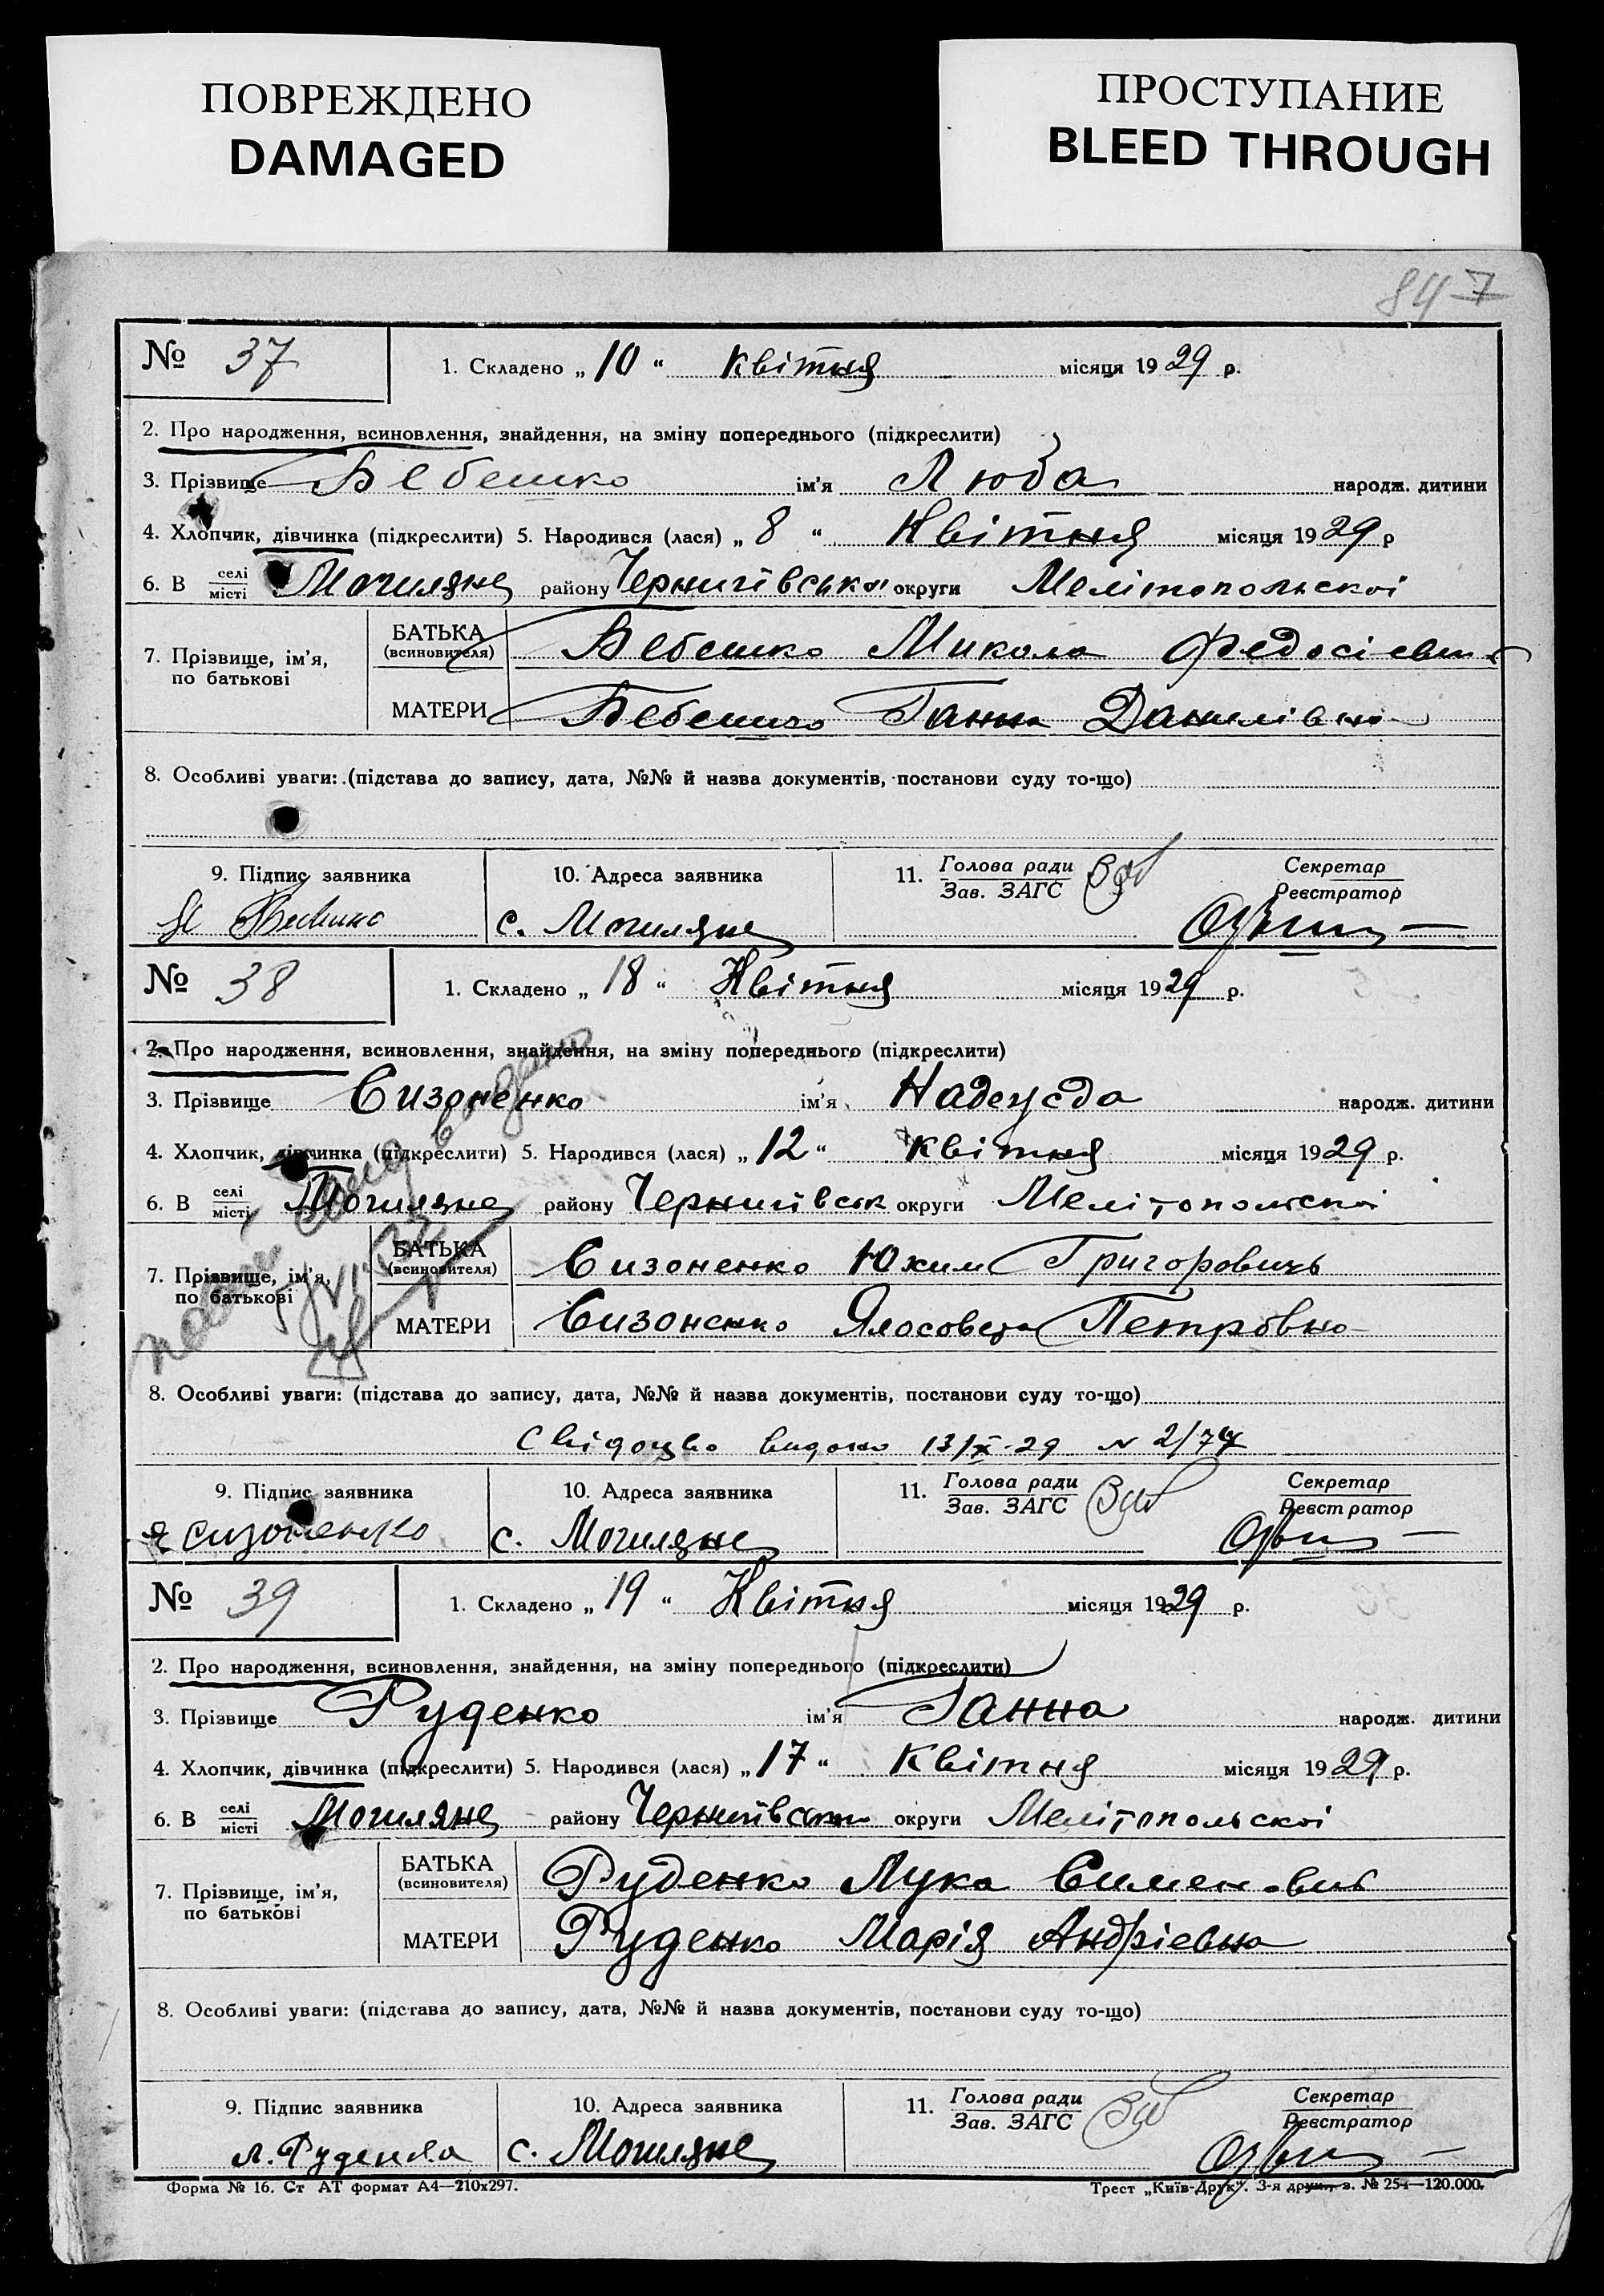 ПОВРЕЖДЕНО
DAMAGED
ПРОСТУПАНИЕ
BLEED THROUGH
84 7
№ 37 1. Складено „ 10 “ Квітня місяця 1929 р.
2. Про народження, всиновлення, знайдення, на зміну попереднього (підкреслити)
3. Прізвище Бебешко ім'я Люба народж. дитини
4. Хлопчик, дівчинка (підкреслити) 5. Народився (лася) „ 8 “ Квітня місяця 1929 р
6. В селі/місті Могиляне району Чернигівської округи Мелітопольскоі
7. Прізвище, ім'я, по батькові
БАТЬКА (всиновителя) Бебешко Микола Федосієвич
МАТЕРИ Бебешко Ганна Данилівна
8. Особливі уваги: (підстава до запису, дата, №№ й назва документів, постанови суду то-що)
9. Підпис заявника 10. Адреса заявника 11. Голова ради Секретар
Зав. ЗАГС Реєстратор
с. Могиляне
№ 38 1. Складено „ 18 “ Квітня місяця 1929 р.
2. Про народження, всиновлення, знайдення, на зміну попереднього (підкреслити)
3. Прізвище Сизоненко ім'я Надежда народж. дитини
4. Хлопчик, дівчинка (підкреслити) 5. Народився (лася) „ 12 “ квітня місяця 1929 р.
6. В селі/місті Могиляне району Чернигівськ округи Мелітопольскоі
7. Прізвище, ім'я, по батькові
БАТЬКА (всиновителя) Сизоненко Юхим Григоровичь
МАТЕРИ Сизоненко Ялосовета Петровна
8. Особливі уваги: (підстава до запису, дата, №№ й назва документів, постанови суду то-що)
Свідоцво видано 13/X-29 N 2/74
9. Підпис заявника 10. Адреса заявника 11. Голова ради Секретар
Зав. ЗАГС Реєстратор
Я Сизоненко с. Могиляне
№ 39 1. Складено „ 19 “ Квітня місяця 1929 р.
2. Про народження, всиновлення, знайдення, на зміну попереднього (підкреслити)
3. Прізвище Руденко ім'я Ганна народж. дитини
4. Хлопчик, дівчинка (підкреслити) 5. Народився (лася) „ 17 “ Квітня місяця 1929 р.
6. В селі/місті Могиляне району Чернигівської округи Мелітопольскоі
7. Прізвище, ім'я, по батькові
БАТЬКА (всиновителя) Руденко Лука Сименович
МАТЕРИ Руденко Марія Андрієвна
8. Особливі уваги: (підстава до запису, дата, №№ й назва документів, постанови суду то-що)
9. Підпис заявника 10. Адреса заявника 11. Голова ради Секретар
Зав. ЗАГС Реєстратор
Л. Руденко с. Могиляне
Форма № 16. Ст АТ формат А4—210х297. Трест „Київ-Друк“. 3-я друк., з. № 254—120.000.